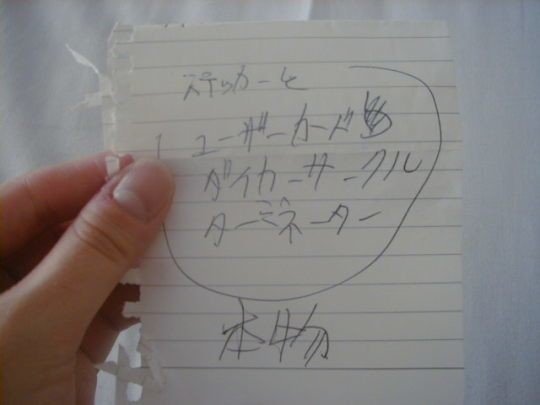 ステッカーと
ユーザーカード
ダイカーサークル
ターミネーター
本物